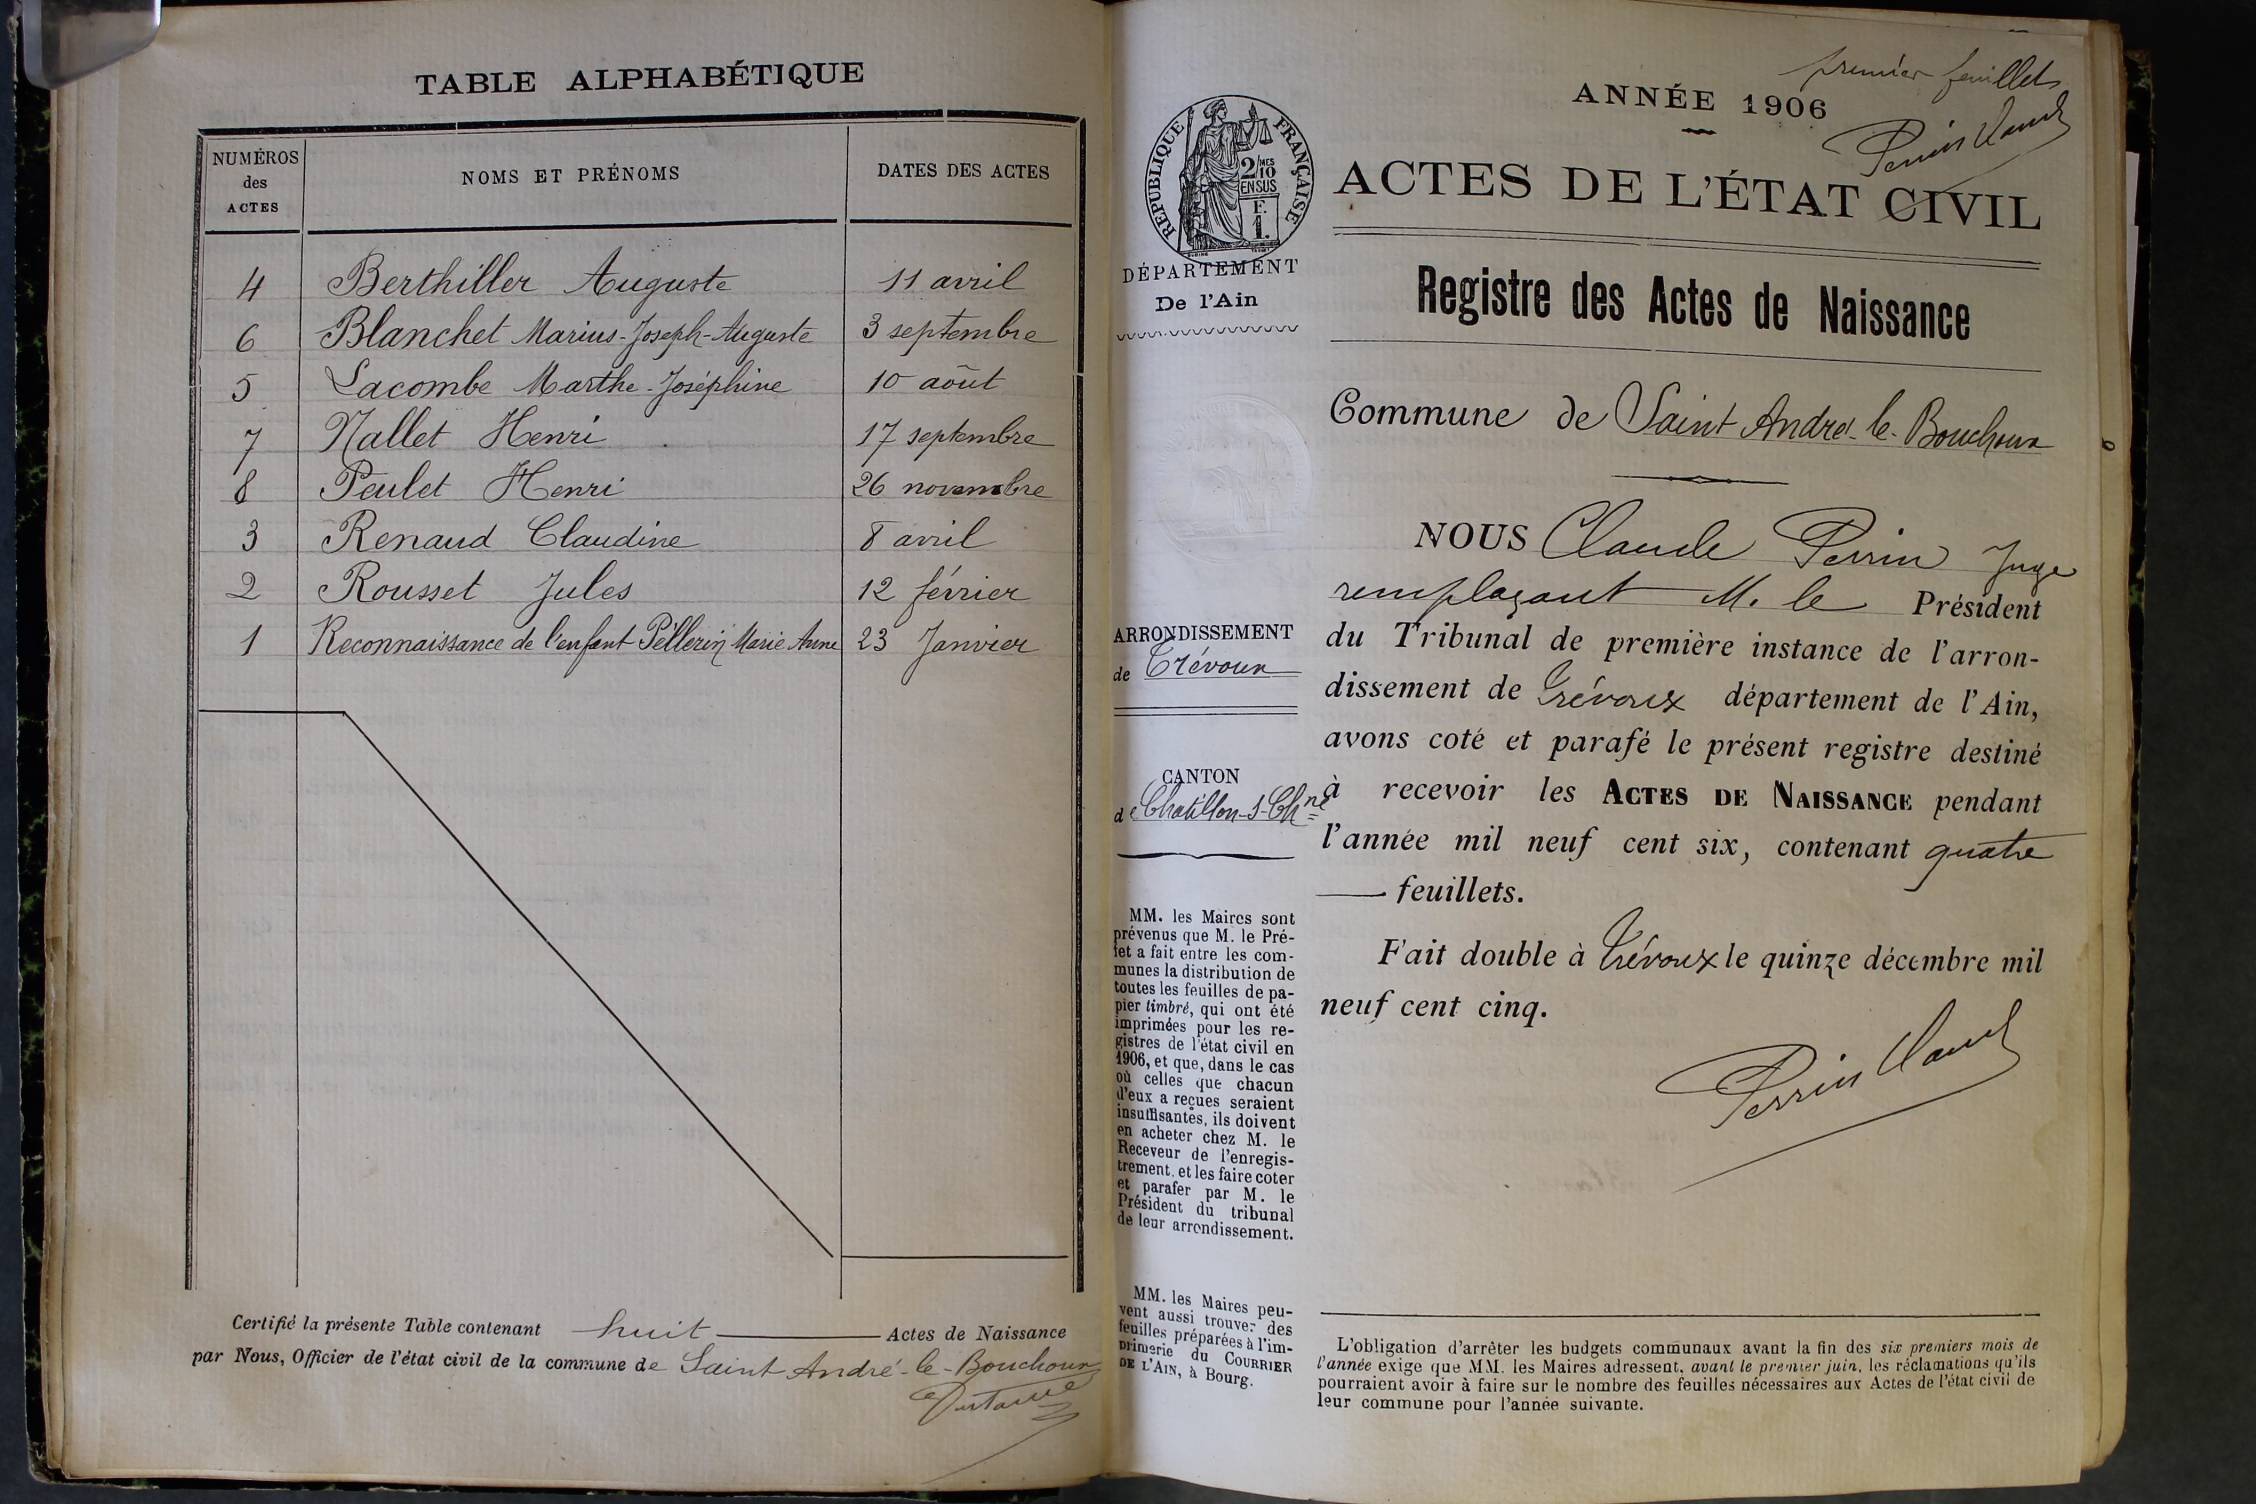 TABLE ALPHABÉTIQUE
NUMÉROS des ACTES NOMS ET PRÉNOMS DATES DES ACTES
4 Berthiller Auguste 11 avril
6 Blanchet Marius-Joseph-Auguste 3 septembre
5 Lacombe Marthe-Joséphine 10 août
7 Nallet Henri 17 septembre
8 Peulet Henri 26 novembre
3 Renaud Claudine 8 avril
2 Rousset Jules 12 février
1 Reconnaissance de l'enfant Pèllerin Marie Anne 23 Janvier
Certifié la présente Table contenant huit Actes de Naissance
par Nous, Officier de l'état civil de la commune de Saint André-le-Bouchoux
premier feuillet
Perrin Claude
ANNÉE 1906
RÉPUBLIQUE FRANÇAISE
2/10 MES
EN SUS
F.
1.
ACTES DE L'ÉTAT CIVIL
DÉPARTEMENT
De l'Ain
Registre des Actes de Naissance
Commune de Saint André-le-Bouchoux
NOUS Claude Perrin Juge
remplaçant M. le Président
du Tribunal de première instance de l'arron-
dissement de Trévoux département de l'Ain,
avons coté et parafé le présent registre destiné
à recevoir les ACTES DE NAISSANCE pendant
l'année mil neuf cent six, contenant quatre
feuillets.
Fait double à Trévoux le quinze décembre mil
neuf cent cinq.
Perrin Claude
ARRONDISSEMENT
de Trévoux
CANTON
de Chatillon-s-Chne
MM. les Maires sont
prévenus que M. le Pré-
fet a fait entre les com-
munes la distribution de
toutes les feuilles de pa-
pier timbré, qui ont été
imprimées pour les re-
gistres de l'état civil en
1906, et que, dans le cas
où celles que chacun
d'eux a reçues seraient
insuffisantes, ils doivent
en acheter chez M. le
Receveur de l'enregis-
trement, et les faire coter
et parafer par M. le
Président du tribunal
de leur arrondissement.
MM. les Maires peu-
vent aussi trouver des
feuilles préparées à l'im-
primerie du COURRIER
DE L'AIN, à Bourg.
L'obligation d'arrêter les budgets communaux avant la fin des six premiers mois de
l'année exige que MM. les Maires adressent, avant le premier juin, les réclamations qu'ils
pourraient avoir à faire sur le nombre des feuilles nécessaires aux Actes de l'état civil de
leur commune pour l'année suivante.